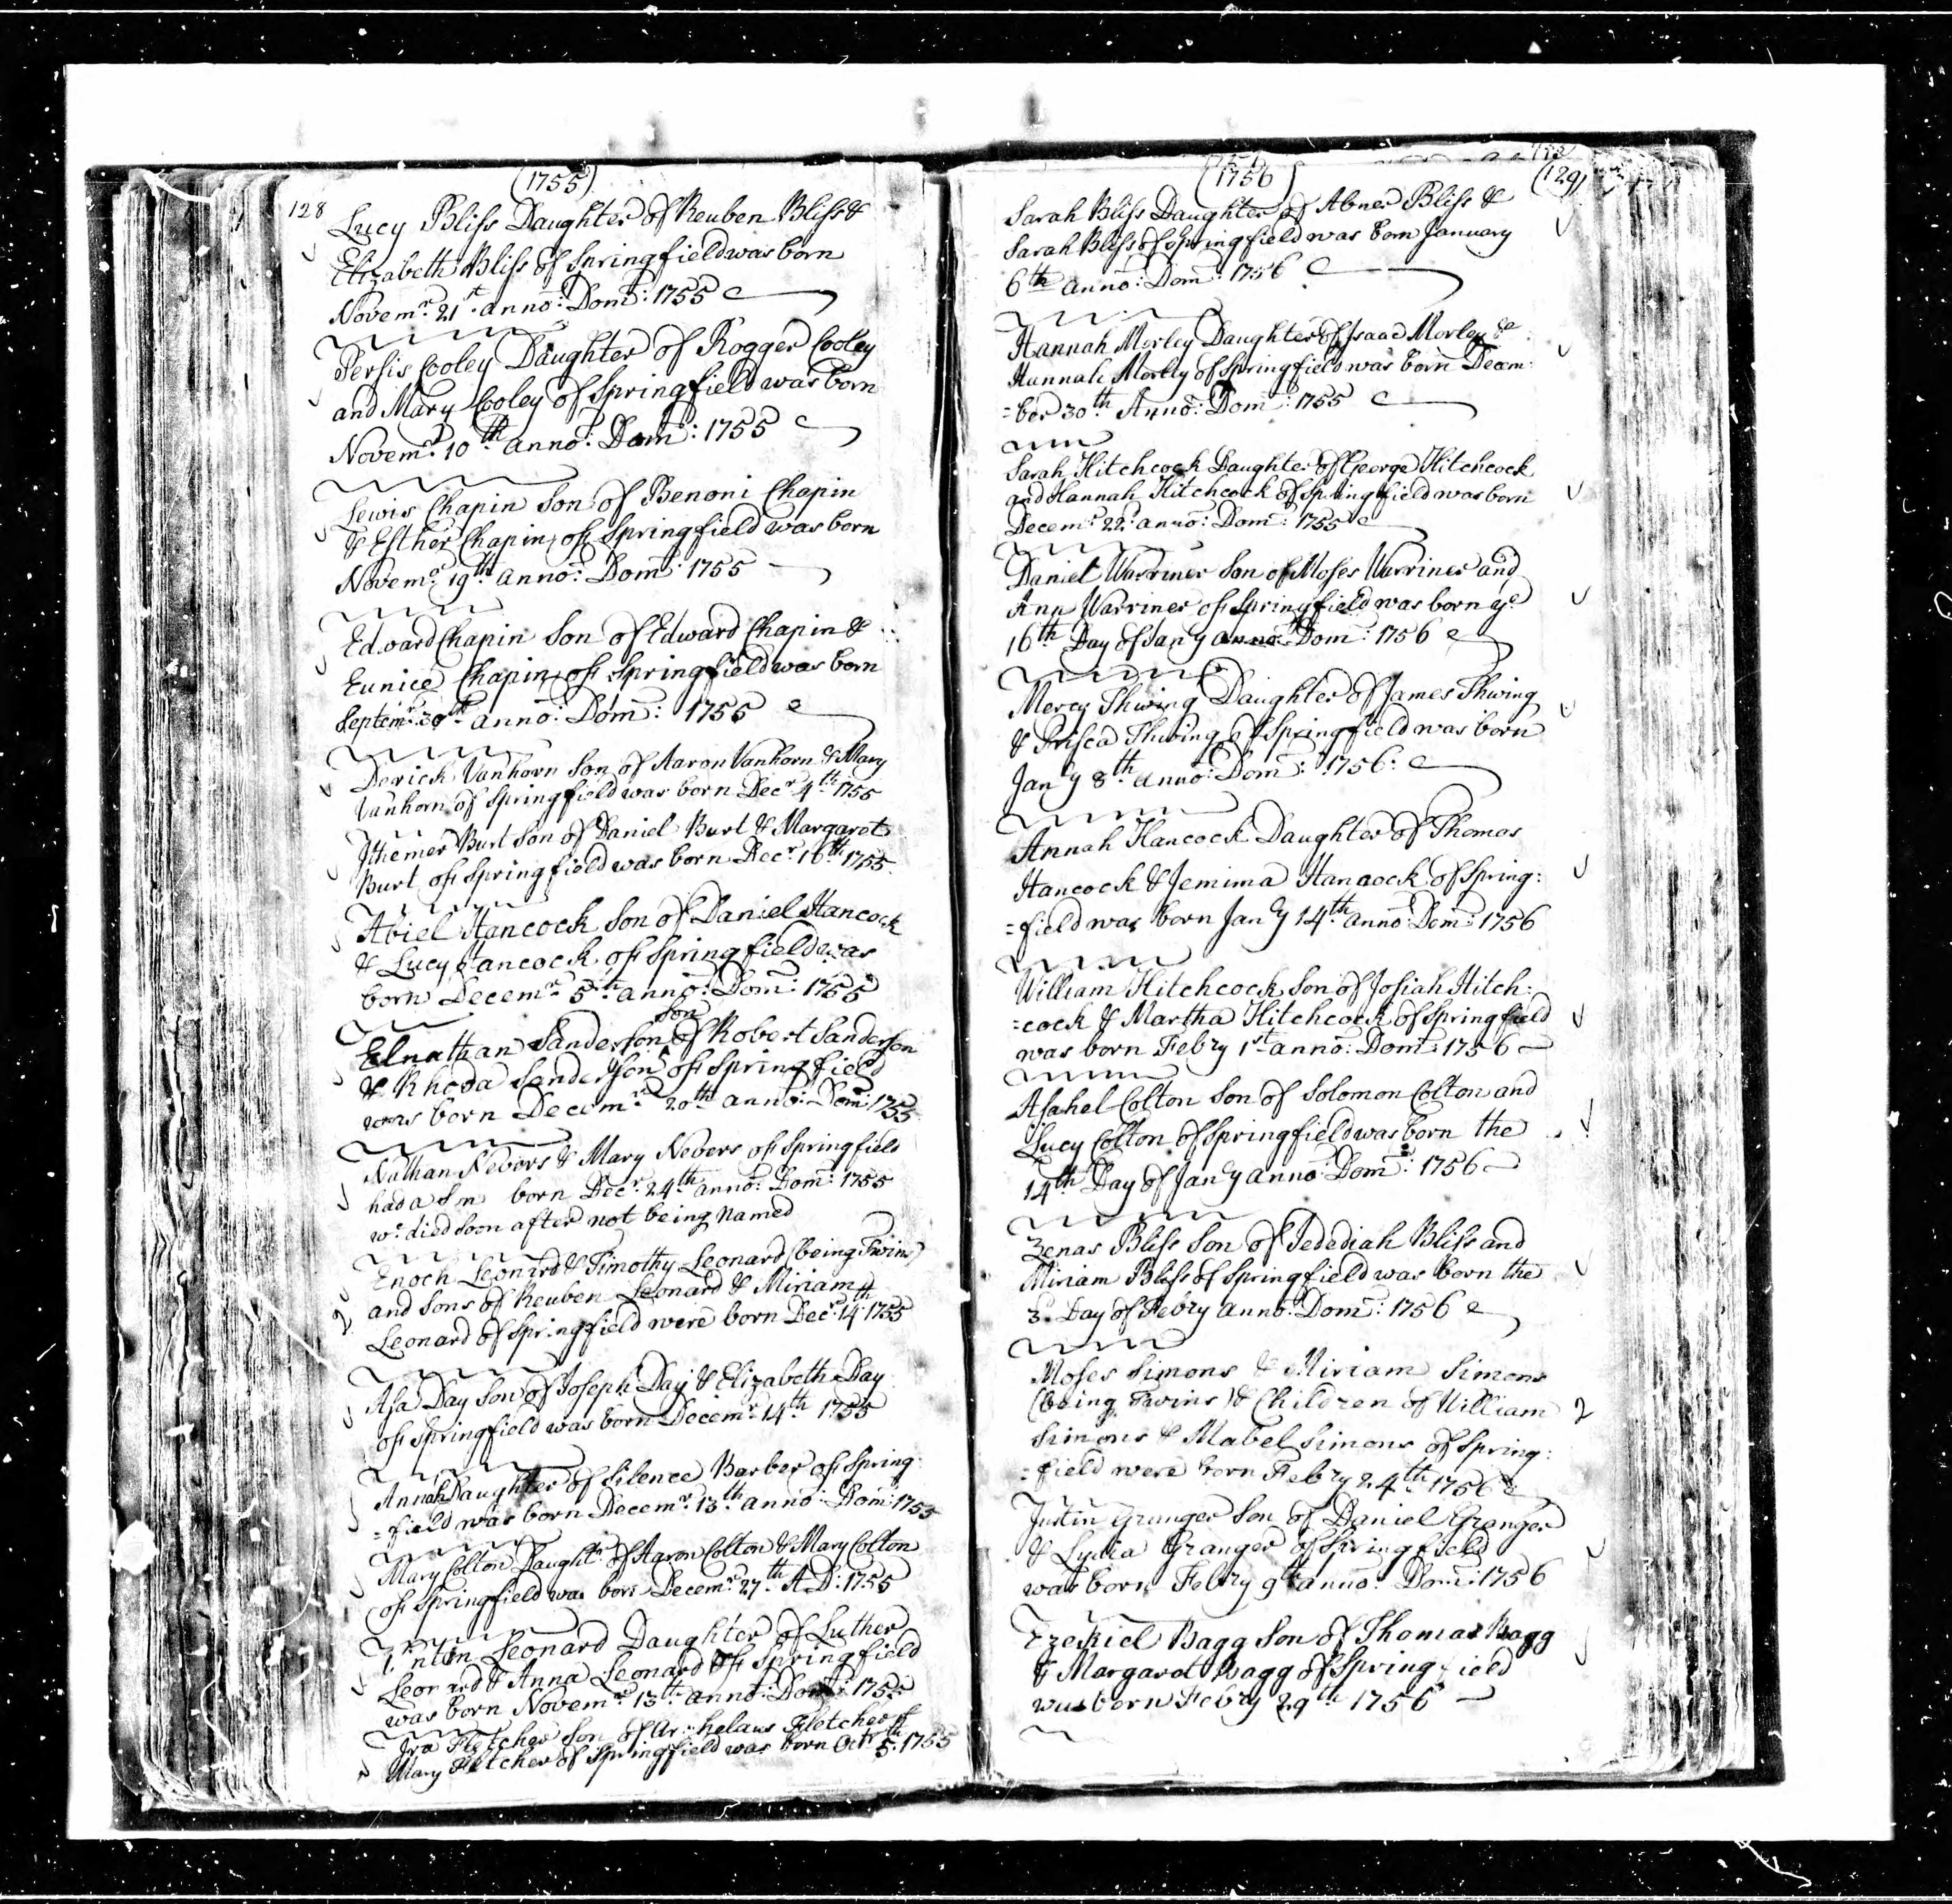 (1755)
128
Lucy Bliss Daughter of Reuben Bliss &
Elizabeth Bliss of Springfield was born
Novemr. 21st. anno: Dom: 1755
Persis Cooley Daughter of Rogger Cooley
and Mary Cooley of Springfield was born
Novemr. 10th anno: Dom: 1755
Lewis Chapin Son of Benoni Chapin
& Esther Chapin of Springfield was born
Novemr. 19th anno: Dom: 1755
Edward Chapin Son of Edward Chapin &
Eunice Chapin of Springfield was born
Septemr. 30th anno: Dom: 1755
Derick Vanhorn Son of Aaron Vanhorn & Mary
Vanhorn of Springfield was born Decr. 4th 1755
Ithemer Burt Son of Daniel Burt & Margaret
Burt of Springfield was born Decr. 16th 1755
Abiel Hancock Son of Daniel Hancock
& Lucy Hancock of Springfield was
born Decemr. 5th anno: Dom: 1755
Son
Elnathan Sanderson of Robert Sanderson
& Rhoda Sanderson of Springfield
was born Decemr. 20th anno: Dom: 1755
Nathan Nevers & Mary Nevers of Springfield
had a Son born Decr. 24th anno: Dom: 1755
wc. died soon after not being Named
Enoch Leonard & Timothy Leonard (being Twins)
and Sons of Reuben Leonard & Miriam
2 Leonard of Springfield were born Decr. 14th 1755
Asa Day Son of Joseph Day & Elizabeth Day
of Springfield was born Decemr. 14th 1755
Annah Daughter of Silence Barber of Spring:
=field was born Decemr. 13th anno: Dom: 1755
Mary Colton Daughtr. of Aaron Colton & Mary Colton
of Springfield was born Decemr. 27th A.D: 1755
Leonard Daughter of Luther
Leonard & Anna Leonard of Springfield
was born Novemr. 13th anno: Dom: 1755
Ira Fletcher Son of Archelaus Fletcher &
Mary Fletcher of Springfield was born Octr 5th: 1755
(1756)
(129)
Sarah Bliss Daughter of Abner Bliss &
Sarah Bliss of Springfield was born January
6th anno: Dom: 1756
Hannah Morley Daughter of Isaac Morley &
Hannah Morley of Springfield was born Decem:
=ber 30th Anno: Dom: 1755
Sarah Hitchcock Daughter of George Hitchcock
and Hannah Hitchcock of Springfield was born
Decemr. 22: anno: Dom: 1755
Daniel Warriner Son of Moses Warriner and
Ann Warriner of Springfield was born ye
16th Day of Jany anno: Dom: 1756
Mercy Thwing Daughter of James Thwing
& Prisca Thwing of Springfield was born
Jany 8th anno: Dom: 1756:
Annah Hancock Daughter of Thomas
Hancock & Jemima Hancock of Spring:
=field was born Jany 14th anno: Dom: 1756
William Hitchcock Son of Josiah Hitch:
=cock & Martha Hitchcock of Springfield
was born Febry 1st anno: Dom: 1756
Asahel Colton Son of Solomon Colton and
Lucy Colton of Springfield was born the
14th Day of Jany anno Dom: 1756
Zenas Bliss Son of Jedediah Bliss and
Miriam Bliss of Springfield was born the
3. Day of Febry anno: Dom: 1756
Moses Simons & Miriam Simons
(being Twins) & Children of William 2
Simons & Mabel Simons of Spring:
=field were born Febry 24th 1756
Justin Granger Son of Daniel Granger
& Lydia Granger of Springfield
was born Febry 9th anno: Dom: 1756
Ezekiel Bagg Son of Thomas Bagg
& Margaret Bagg of Springfield
was born Febry 29th 1756